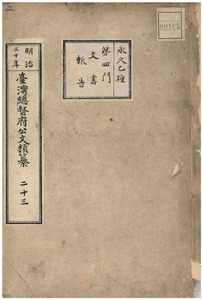 永久乙種
第四門
文書
報告
明治
三十年
臺灣總督府公文類纂
二十三